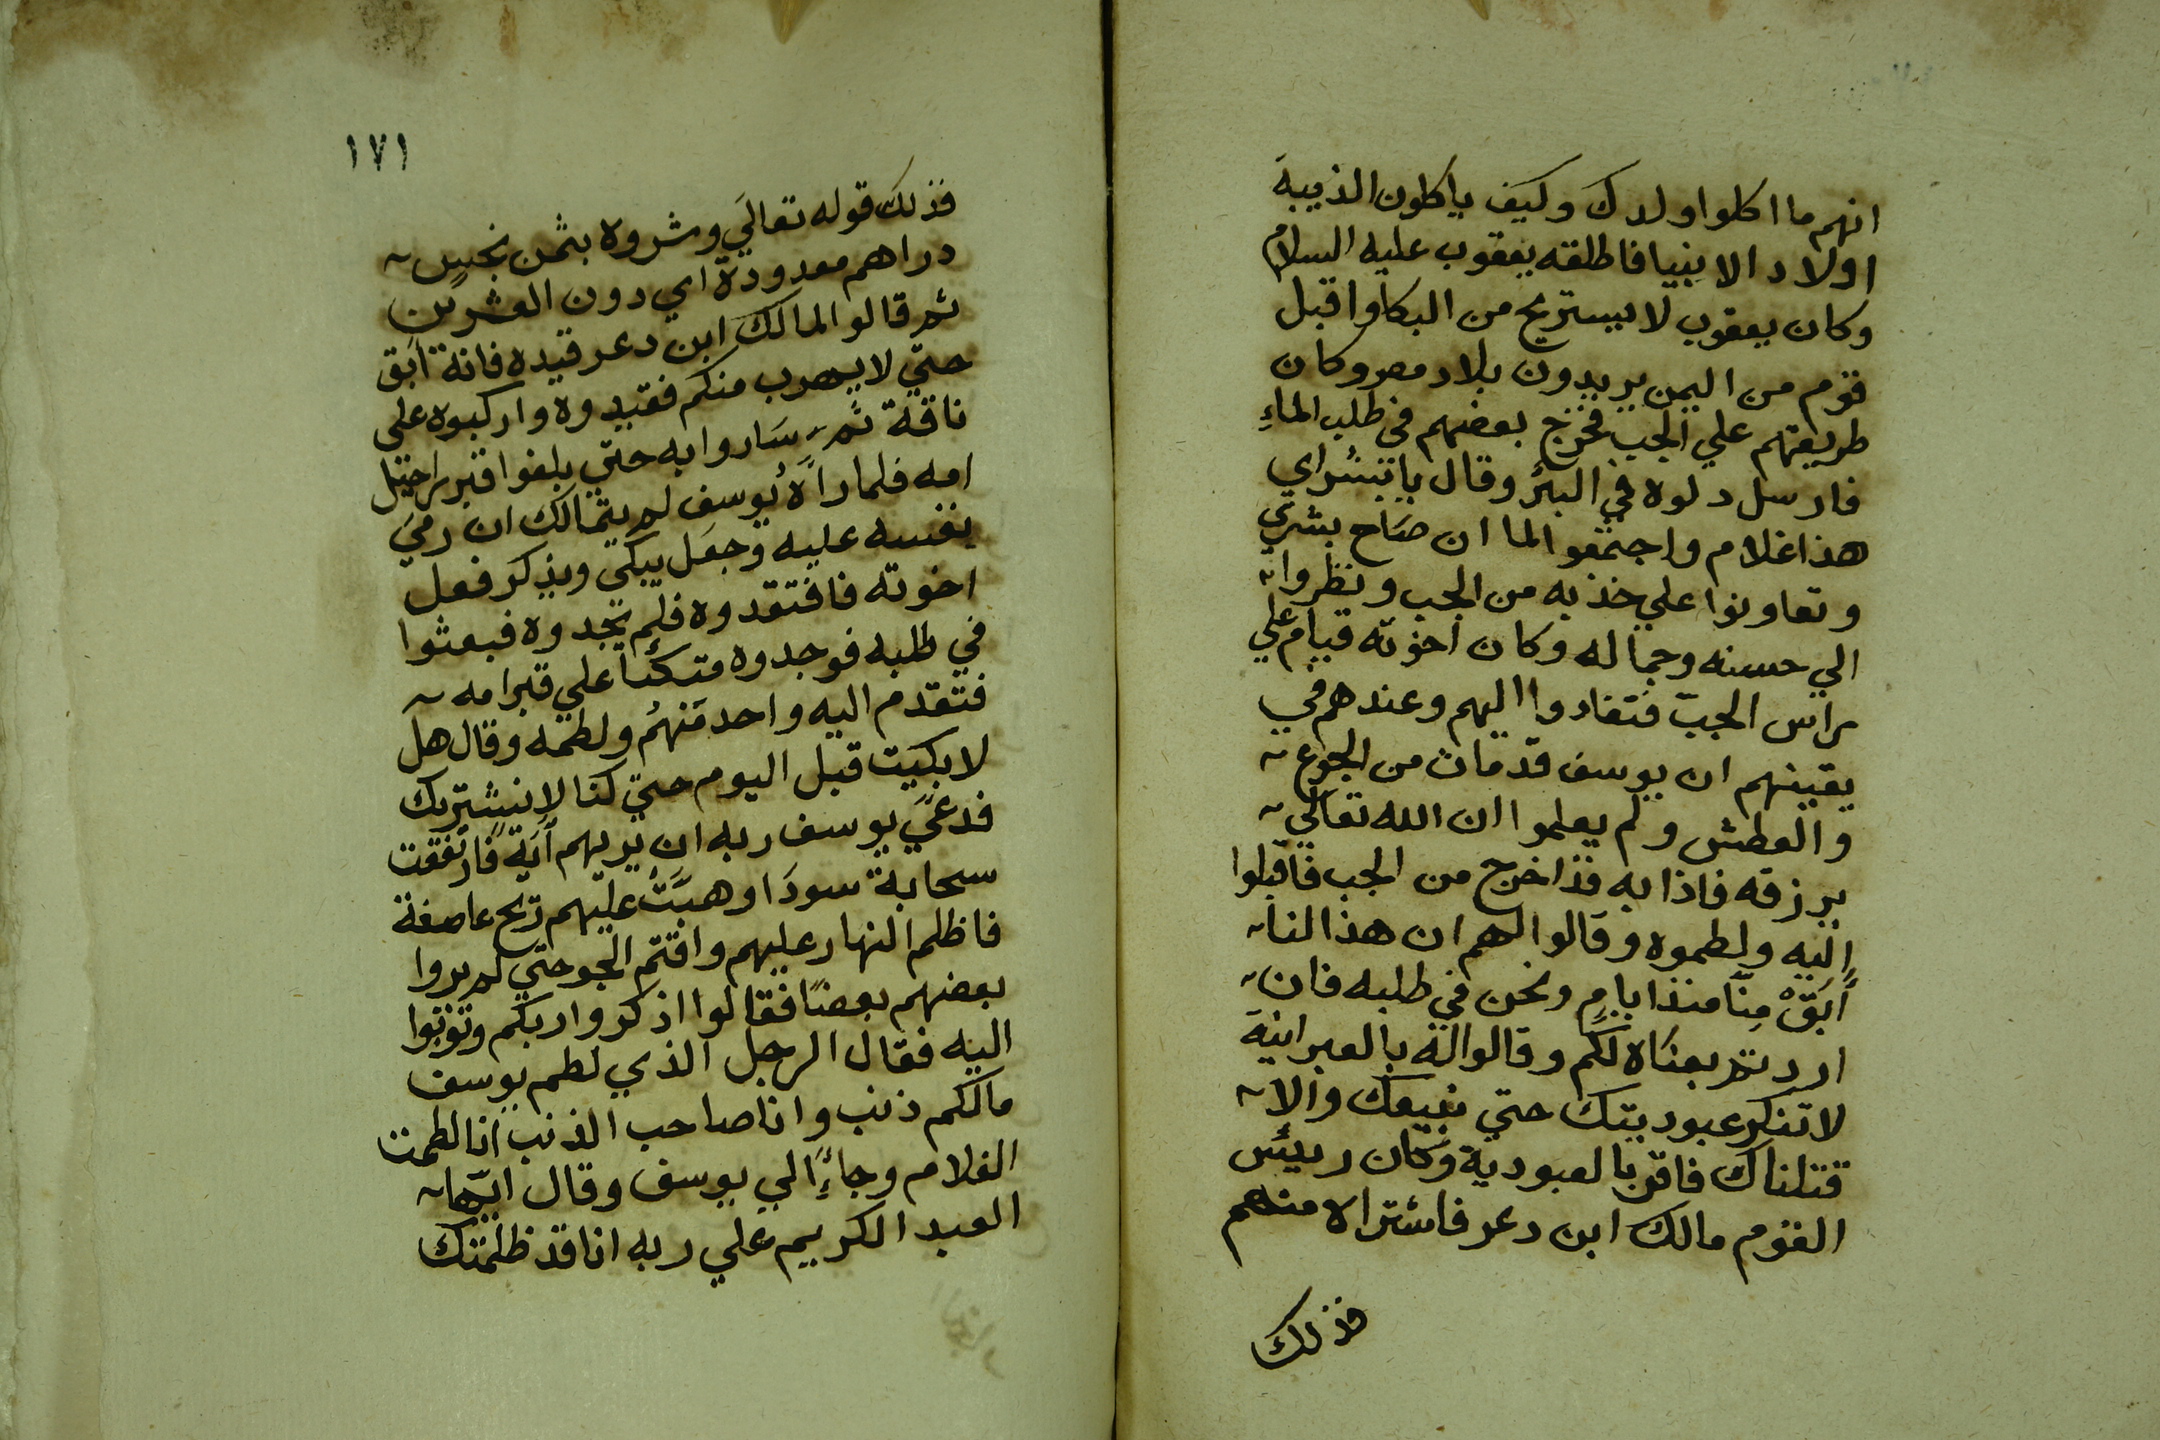 انهم ما اكلوا ولدك وكيف ياكلون الذيبة
اولاد الانبيا فاطلقه يعقوب عليه السلام
وكان يعقوب لا يستريح من البكا واقبل
قوم من اليمن يريدون بلاد مصر وكان
طريقهم علي الجب فخرج بعضهم في طلب الماءِ
فارسل دلوه في البئر وقال يا بشراي
هذا غلام واجتمعوا لما ان صاح بشري
وتعاونوا علي جذبه من الجب ونظروا
الي حسنه وجماله وكان اخوته قيام علي
راس الجبّ فتعادوا اليهم وعندهم في
يقينهم ان يوسف قد مات من الجوع
والعطش ولم يعلموا ان الله تعالي
يرزقه فاذا به قد اخرج من الجب فاقبلوا
اليه ولطموه وقالوا لهم ان هذا لنا
أَبَقْ مِنّا منذ ايامٍ ونحن في طلبه فان
اردتم بعناه لكم وقالوا له بالعبرانية
لا تنكر عبوديتك حتي نبيعك والا
قتلناك فاقر بالعبودية وكان رييس
القوم مالك ابن دعر فاشتراه منهم
فذلك
١٧١
فذلك قوله تعالي وشروه بثمن بخسٍ
دراهم معدودة اي دون العشرين
ثم قالوا لمالك ابن دعر قيده فانه آبق
حتي لا يهرب منكم فقيدوه واركبوه علي
ناقة ثم ساروا به حتي بلغوا قبر راحيل
امه فلما رآهُ يوسف لم يتمالك ان رمي
بنفسه عليه وجعل يبكي ويذكر فعل
اخوته فافتقدوه فلم يجدوه فبعثوا
في طلبه فوجدوه متكئا علي قبر امه
فتقدم اليه واحد منهمُ ولطمه وقال هل
لا بكيت قبل اليوم حتي كنا لا نشتريك
فدعي يوسف ربه ان يريهم آية فارتفعت
سحابة سودا وهبّتْ عليهم ريح عاصفة
فاظلم النهار عليهم واقتم الجو حتي لم يروا
بعضهم بعضًا فقالوا اذكروا ربكم وتوبوا
اليه فقال الرجل الذي لطم يوسف
مالكم ذنب وانا صاحب الذنب انا لطمت
الغلام وجاءَ الي يوسف وقال ايّها
العبد الكريم علي ربه انا قد ظلمتك